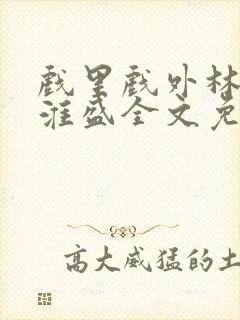 戏里戏外林
淮盛全文免
高大威猛的土